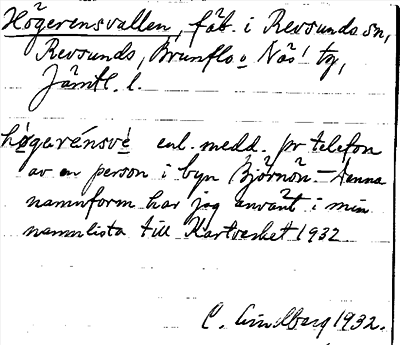 Högerensvallen, fäb. i Revsunds sn,
Revsunds, Brunflo o Näs' tg,
Jämtl. l.
hø̀garénsvè enl. medd. pr telefon
av en person i byn Björnön. – Denna
namnform har jag använt i min
namnlista till Kartverket 1932
C. Lindberg 1932.